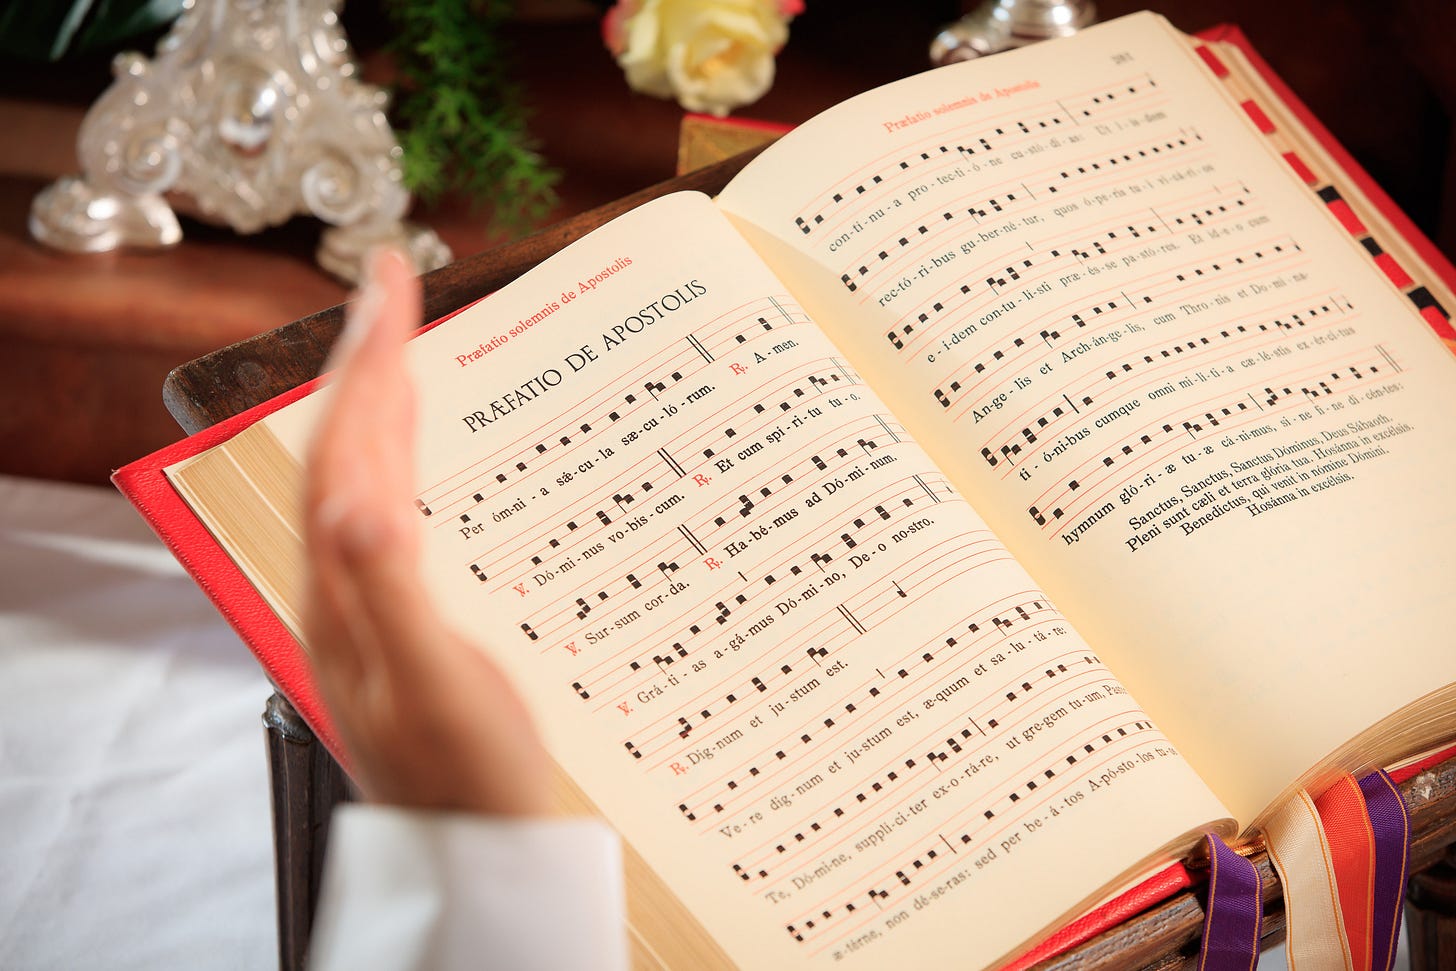 Præfatio solemnis de Apostolis
PRÆFATIO DE APOSTOLIS
Per óm-ni-a sǽ-cu-la sæ-cu-ló-rum. ℟. A-men.
℣. Dó-mi-nus vo-bis-cum. ℟. Et cum spi-ri-tu tu-o.
℣. Sur-sum cor-da. ℟. Ha-bé-mus ad Dó-mi-num.
℣. Grá-ti-as a-gá-mus Dó-mi-no, De-o no-stro.
℟. Dig-num et ju-stum est.
Ve-re dig-num et ju-stum est, æ-quum et sa-lu-tá-re:
Te, Dó-mi-ne, suppli-ci-ter ex-o-rá-re, ut gre-gem tu-um, Past
æ-térne, non dé-se-ras: sed per be-á-tos A-pó-sto-los tu-o
381
Præfatio solemnis de Apostolis
con-ti-nu-a pro-tec-ti-ó-ne cu-stó-di-as: Ut i-is-dem
rec-tó-ri-bus gu-ber-né-tur, quos ó-pe-ris tu-i vi-cá-ri-os
e-í-dem con-tu-li-sti præ-és-se pa-stó-res. Et íd-e-o cum
An-ge-lis et Arch-án-ge-lis, cum Thro-nis et Do-mi-na-
ti-ó-ni-bus cumque omni mi-lí-ti-a cæ-lé-stis ex-ér-ci-tus
hymnum gló-ri-æ tu-æ cá-ni-mus, si-ne fi-ne di-cén-tes:
Sanctus, Sanctus, Sanctus Dóminus, Deus Sábaoth.
Pleni sunt cæli et terra glória tua. Hosánna in excélsis.
Benedíctus, qui venit in nómine Dómini.
Hosánna in excélsis.